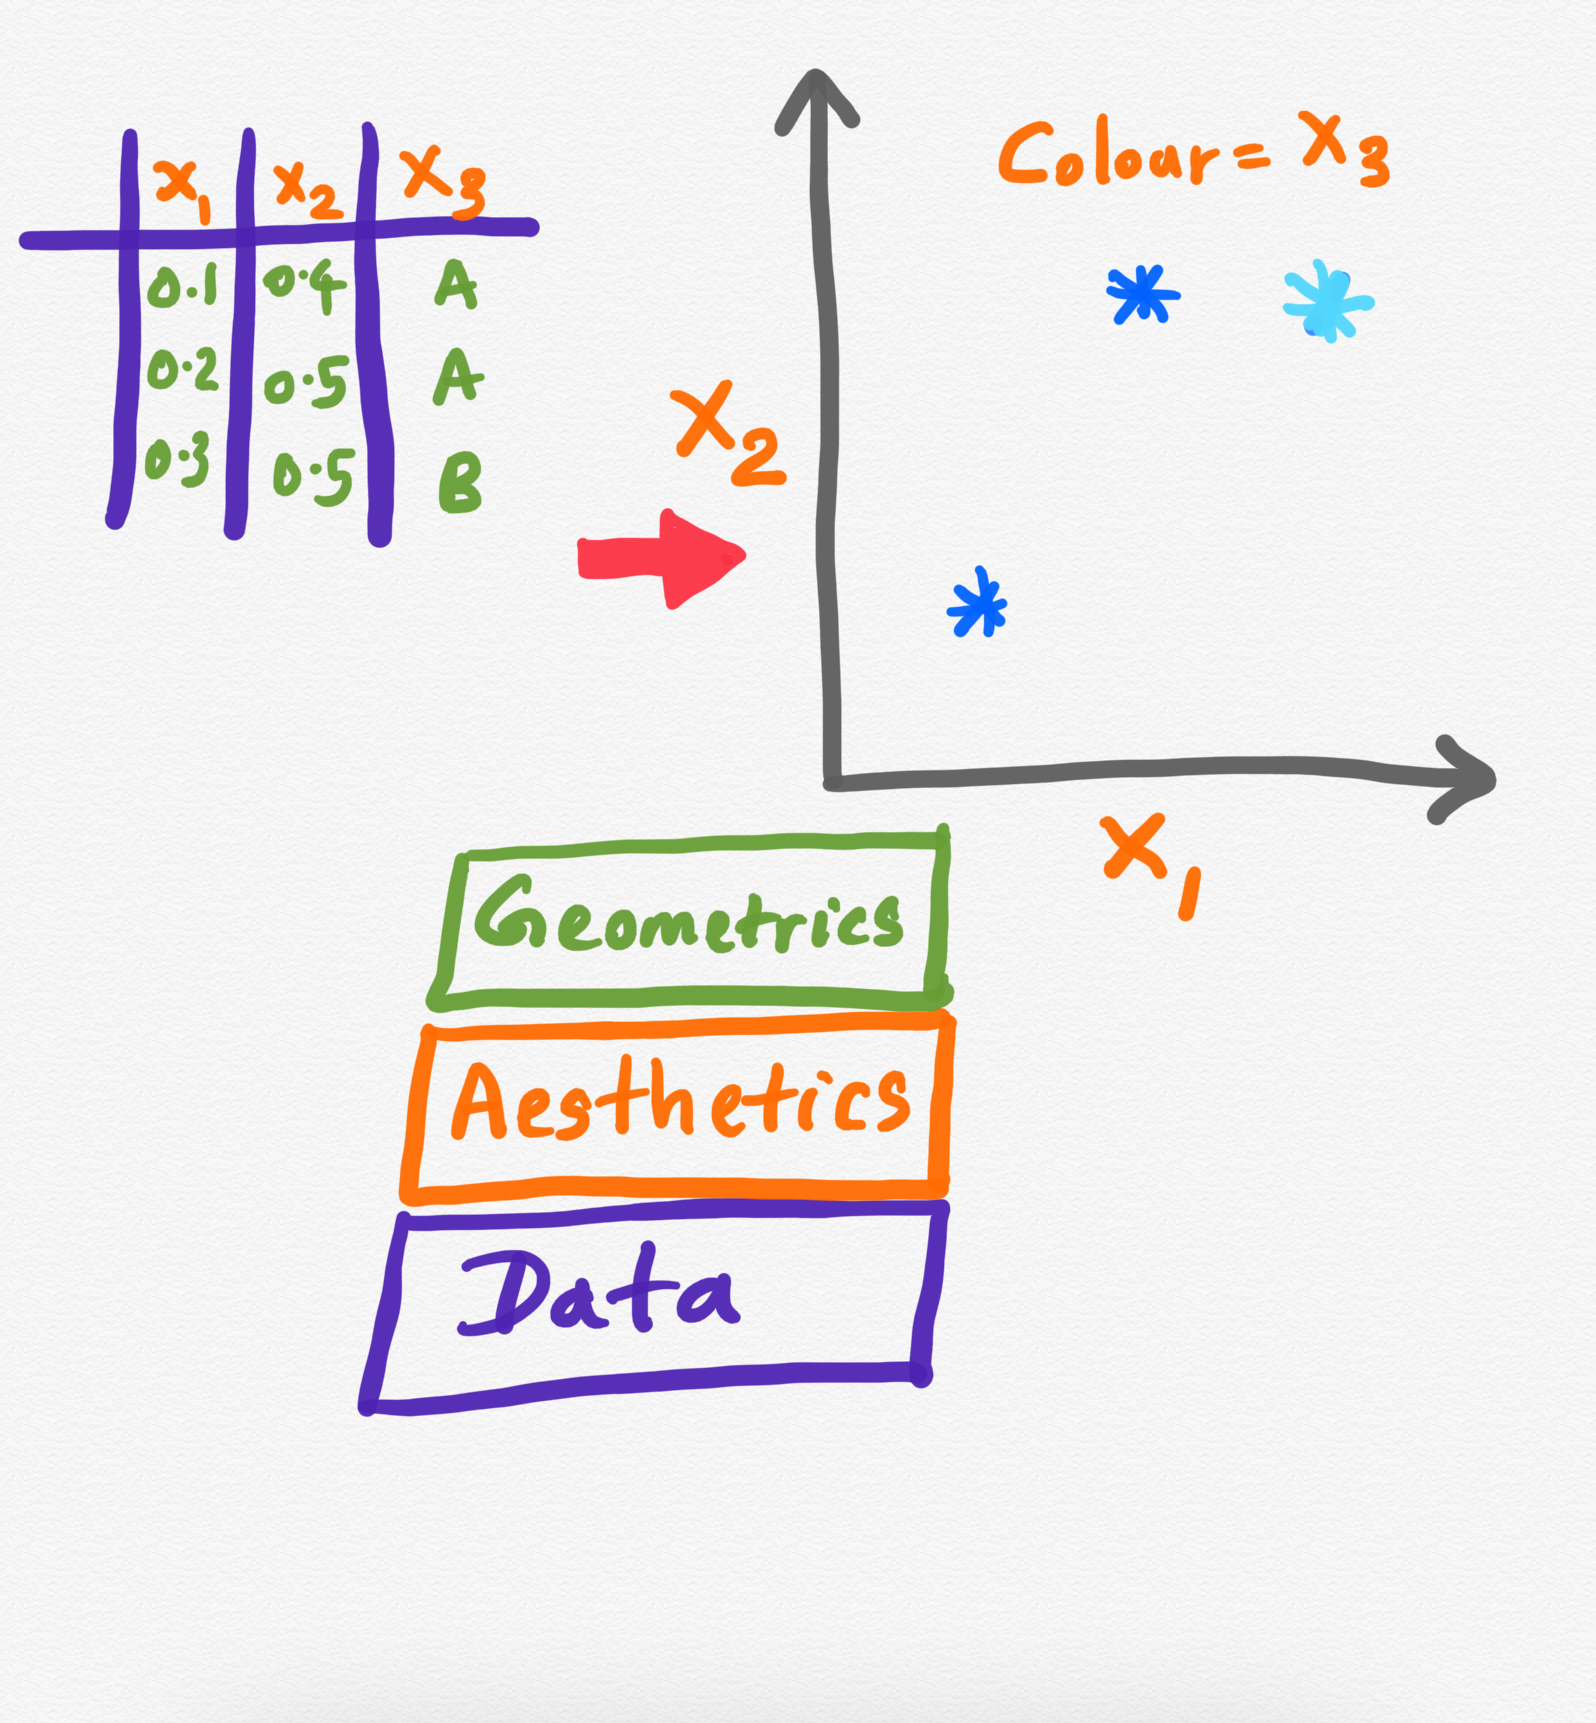 x₁ x₂ x₃
0.1 0.4 A
0.2 0.5 A
0.3 0.5 B
Colour = x₃
x₂
x₁
Geometrics
Aesthetics
Data